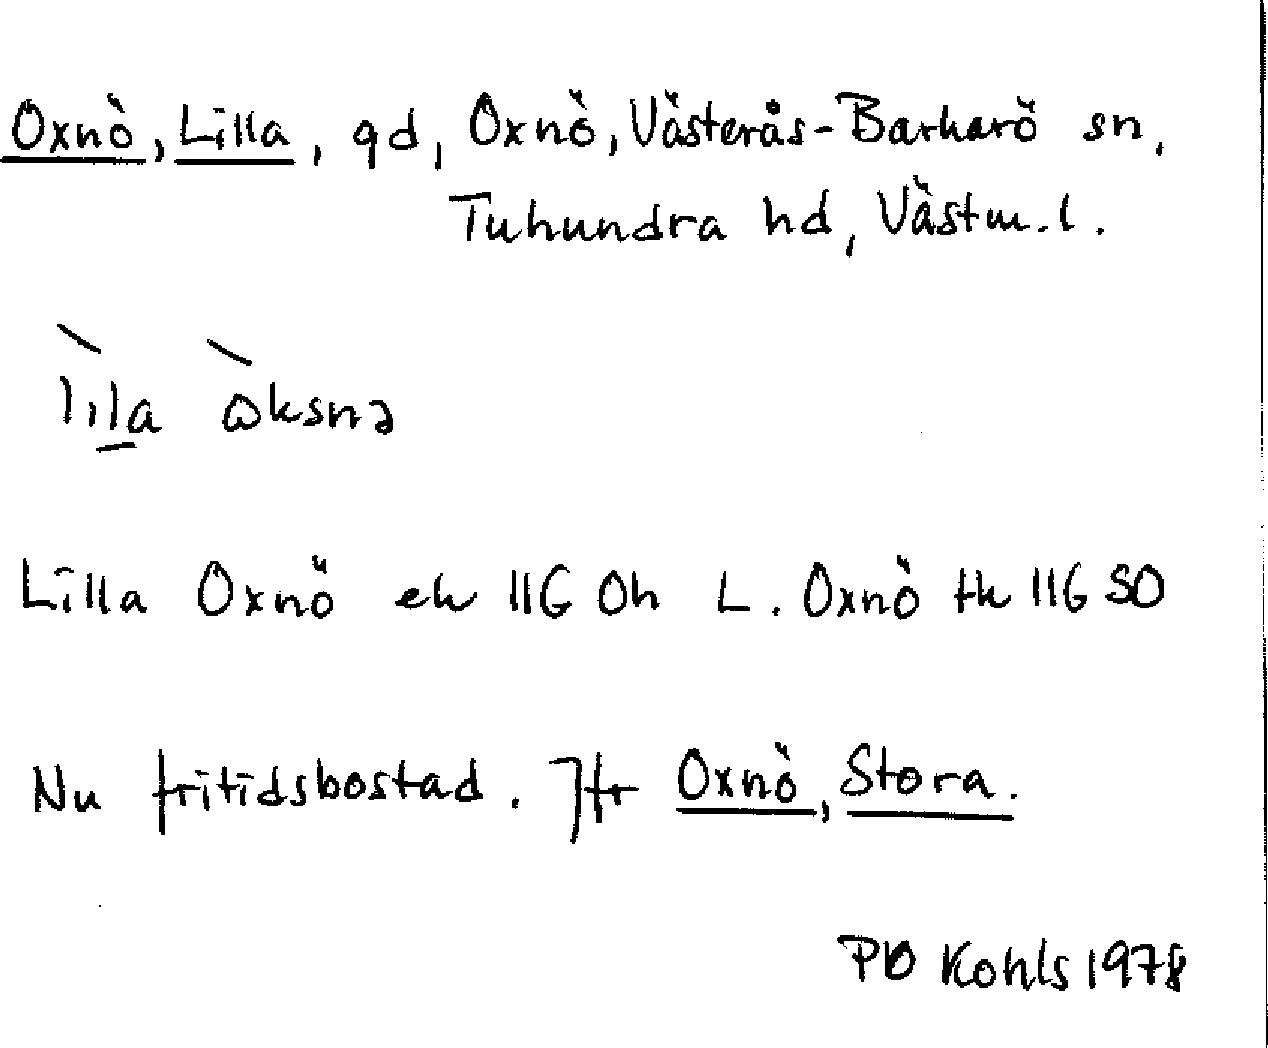 Oxnö, Lilla, gd, Oxnö, Västerås-Barkarö sn,
Tuhundra hd, Västm.l.
lila ksnə
Lilla Oxnö ek 11G 0h L. Oxnö tk 11G SO
Nu fritidsbostad. Jfr Oxnö, Stora.
PO Kohls 1978